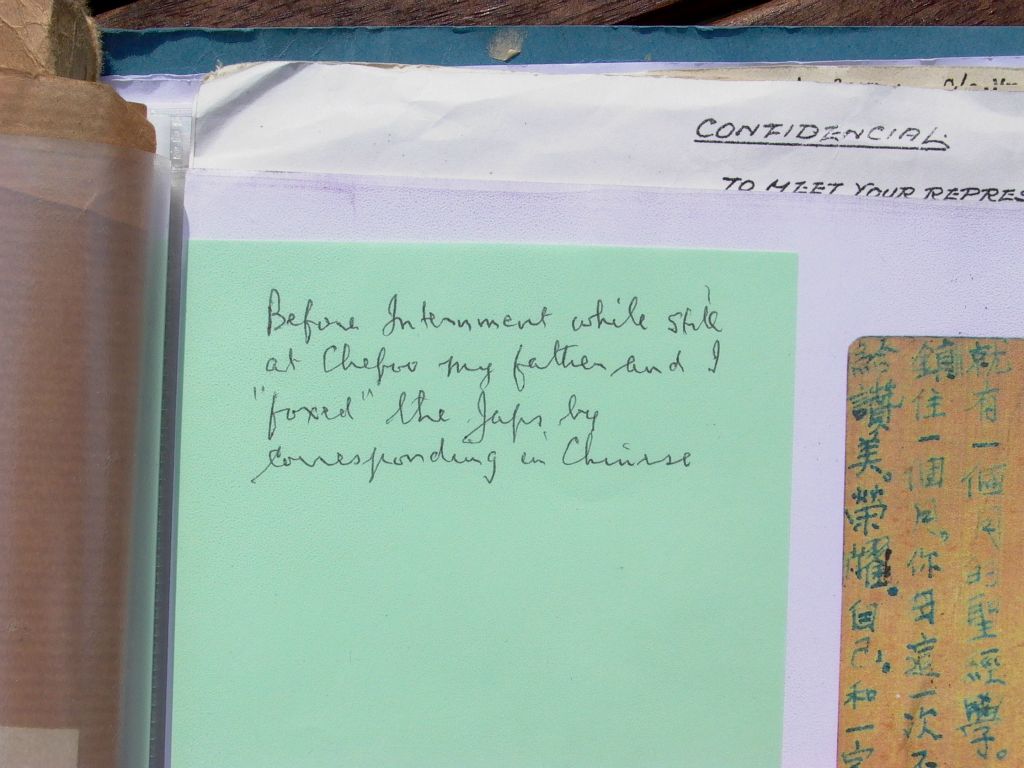 CONFIDENCIAL
TO MEET YOUR REPRES
Before Internment while still
at Chefoo my father and I
"foxed" the Japs by
corresponding in Chinese
就有一個月的聖經學。
鎮住一個月。你母這一次不
給讚美。榮耀。自己。和一家